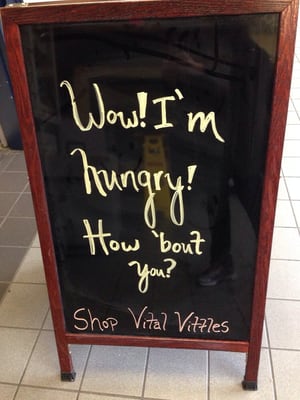 Wow! I'm
hungry!
How 'bout
you?
Shop Vital Vittles